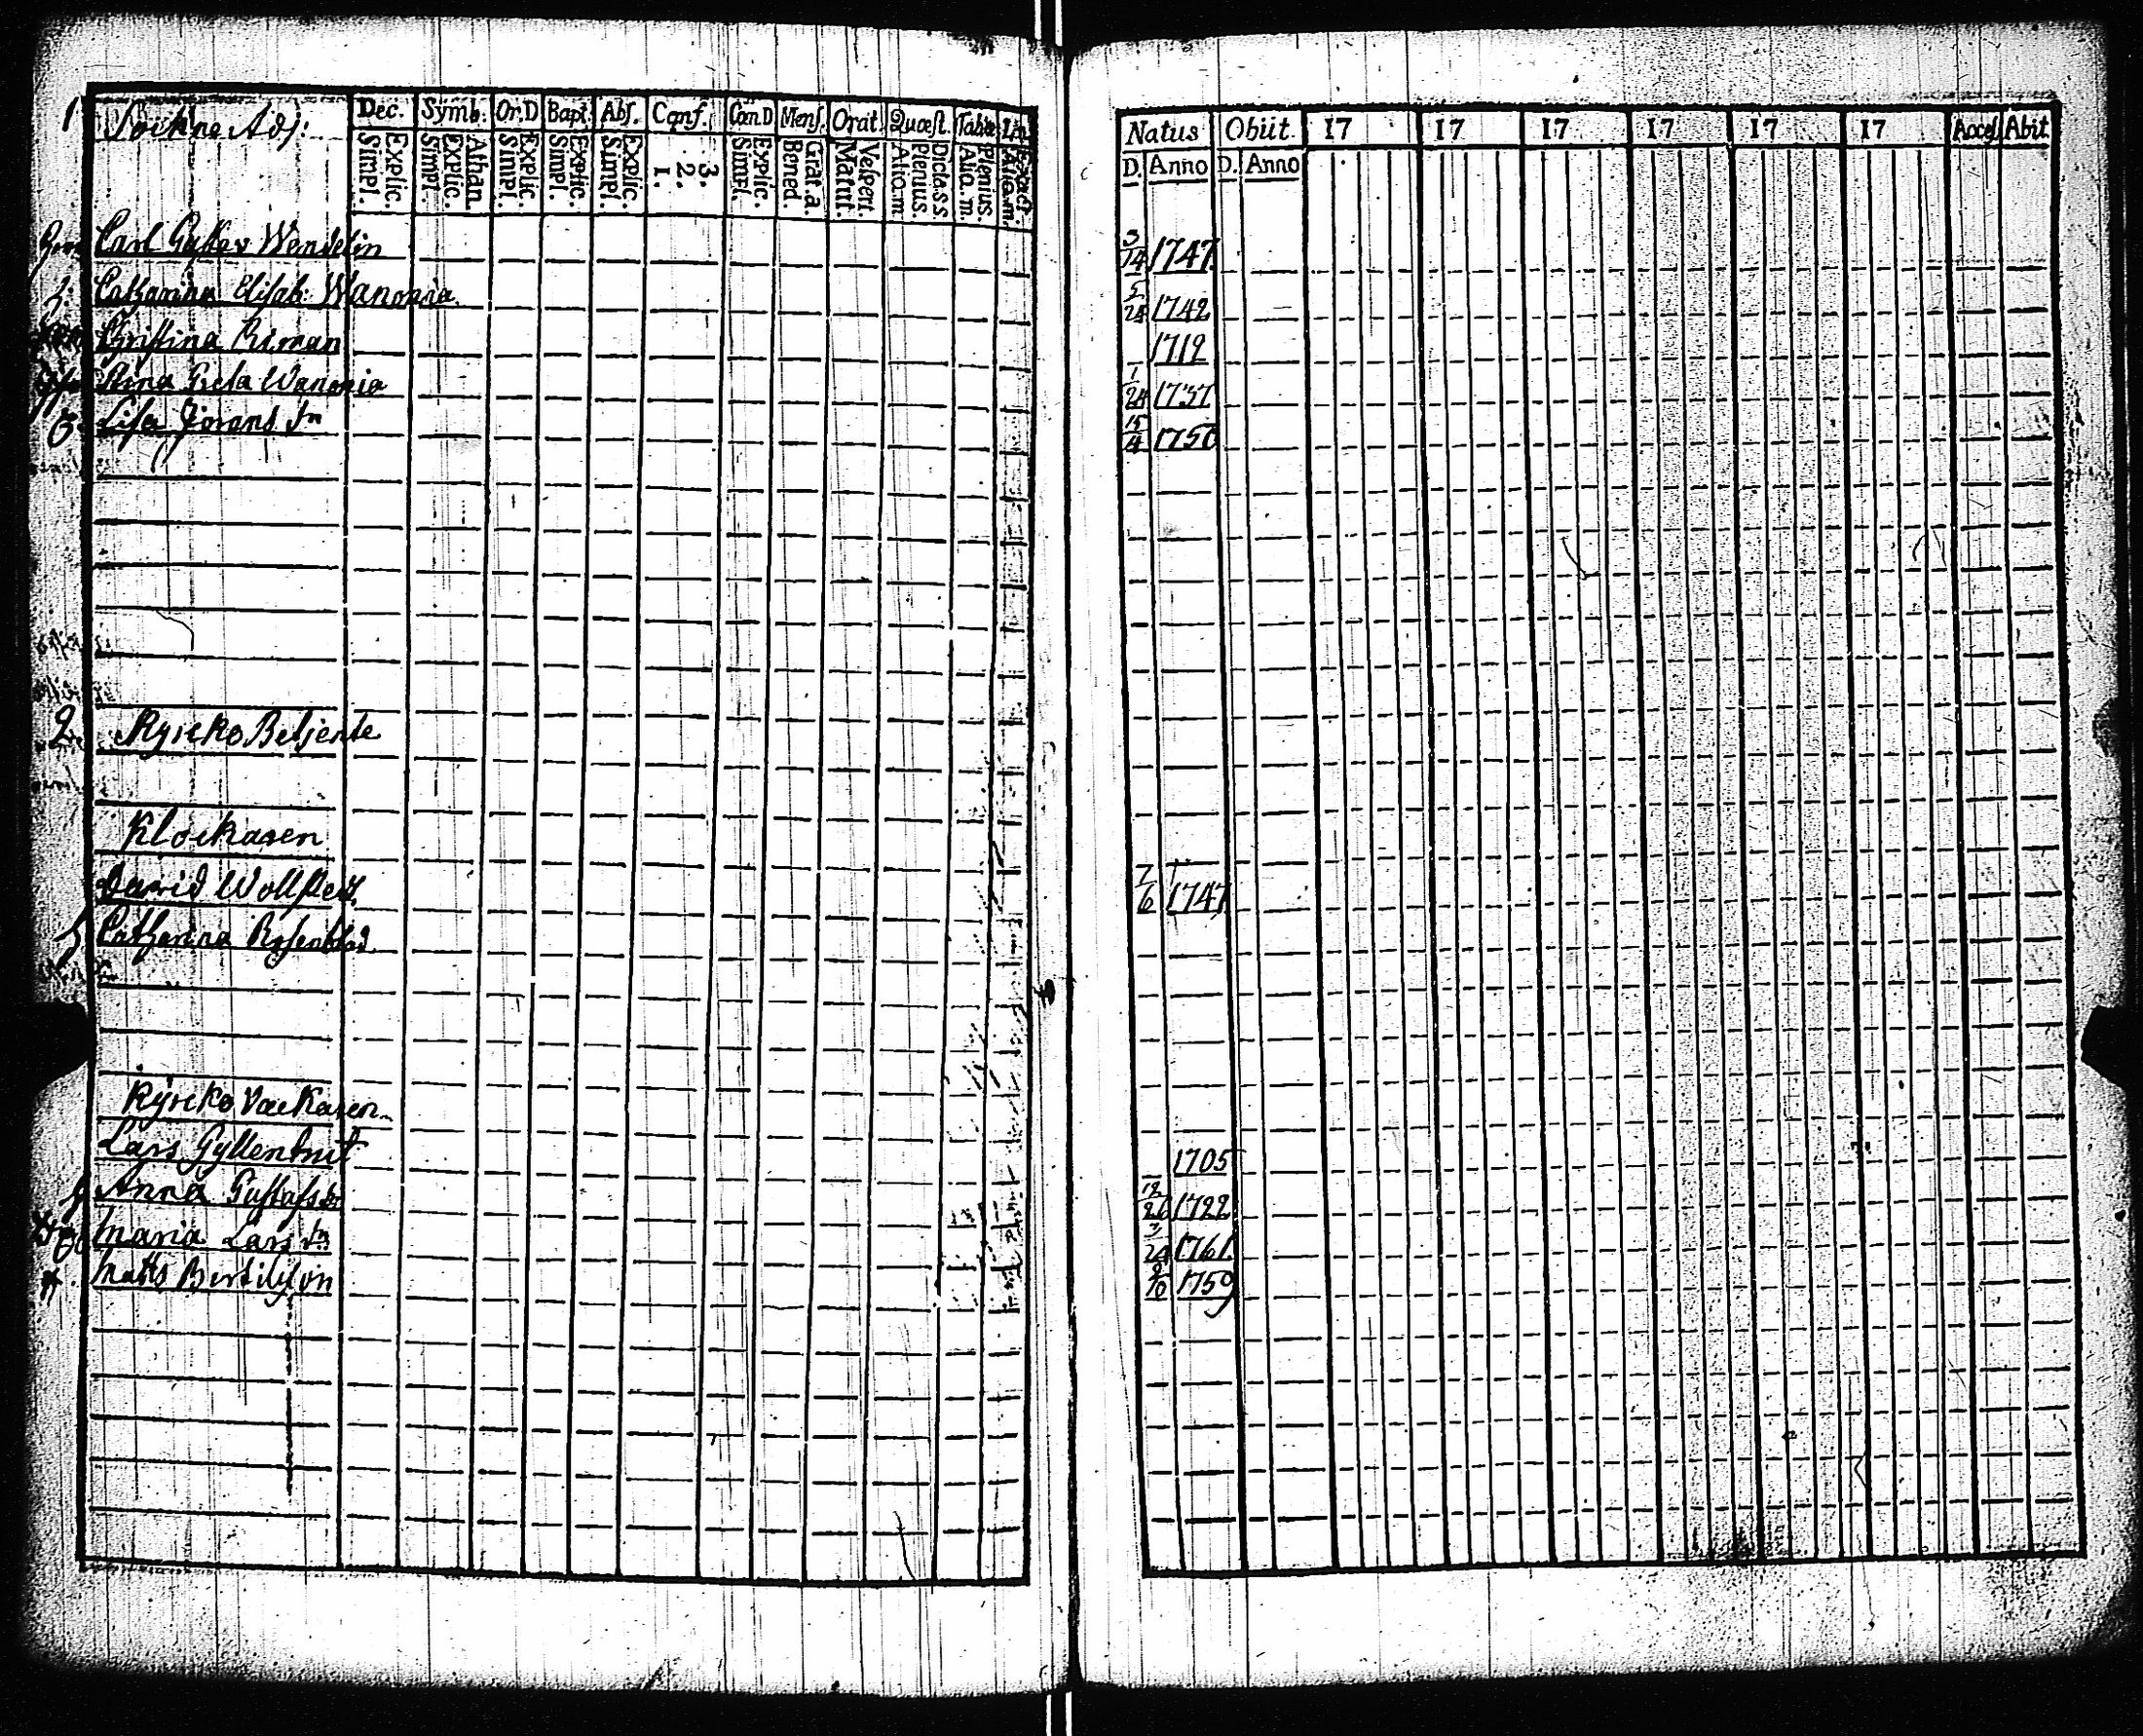 1 Sockne Adj:
Dec. Symb. Or.D Bapt. Abs. Conf. Cœn.D Mens. Orat. Quæst. Tabŭæ
Simpl. Explic. Simpl. Explic. Athan. Simpl. Explic. Simpl. Explic. Simpl. Explic. 1. 2. 3. Simpl. Explic. Bened. Grat.a. Matut. Vesperi. Alio.m. Plenius. Dicta.s.s Alio.m. Plenius. Alio.m. Exact.
Natus Obiit. 17 17 17 17 17 17 Acces. Abit
D. Anno D. Anno
Carl Gustav Wendelin 3/14 1747.
h: Catharina Elisab: Wanonia. 5/28 1742
Christina Riman 1719
Greta Wanonia 1/24 1737
Lisa Jörans dr 15/4 1750
2. Kyrcko Betjente
Klockaren
David Wollstedt 7/6 1747
h Catharina Rosenblad
Kyrcko Väcktaren
Lars Gyllenknit 1705
h Anna Gustafs dr 12/26 1722
Maria Lars dr 3/24 1761.
Matts Bertilsson 1759